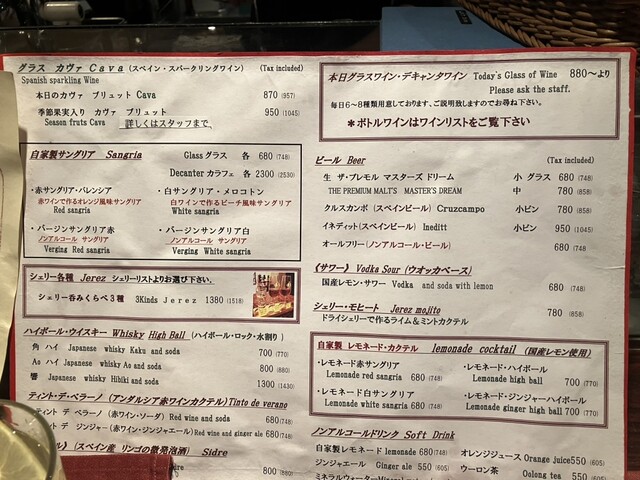 グラス カヴァ Cava (スペイン・スパークリングワイン) (Tax included)
Spanish sparkling Wine
本日のカヴァ ブリュット Cava 870 (957)
季節果実入り カヴァ ブリュット 950 (1045)
Season fruts Cava 詳しくはスタッフまで
自家製サングリア Sangria Glassグラス 各 680 (748)
Decanter カラフェ 各 2300 (2530)
・赤サングリア・バレンシア
赤ワインで作るオレンジ風味サングリア
Red sangria
・白サングリア・メロコトン
白ワインで作るピーチ風味サングリア
White sangria
・バージンサングリア赤
ノンアルコール サングリア
Verging Red sangria
・バージンサングリア白
ノンアルコール サングリア
Verging White sangria
シェリー各種 Jerez シェリーリストよりお選び下さい。
シェリー呑みくらべ3種 3Kinds Jerez 1380 (1518)
ハイボール・ウイスキー Whisky High Ball (ハイボール・ロック・水割り)
角 ハイ Japanese whisky Kaku and soda 700 (770)
Ao ハイ Japanese whisky Ao and soda 800 (880)
響 Japanese whisky Hibiki and soda 1300 (1430)
ティント・デ・ベラーノ (アンダルシア赤ワインカクテル) Tinto de verano
ティント デ ベラーノ (赤ワイン・ソーダ) Red wine and soda 680(748)
ティント デ ジンジャー (赤ワイン・ジンジャエール) Red wine and ginger ale 680(748)
(スペイン産 リンゴの微発泡酒) Sidre
800 (880)
本日グラスワイン・デキャンタワイン Today's Glass of Wine 880〜より
Please ask the staff.
毎日6〜8種類用意しております、ご説明致しますのでお尋ね下さい。
*ボトルワインはワインリストをご覧下さい
ビール Beer (Tax included)
生 ザ・プレモル マスターズ ドリーム 小 グラス 680 (748)
THE PREMIUM MALT'S MASTER'S DREAM 中 780 (858)
クルスカンポ (スペインビール) Cruzcampo 小ビン 780 (858)
イネディット(スペインビール) Ineditt 小ビン 950 (1045)
オールフリー(ノンアルコール・ビール) 680 (748
《サワー》 Vodka Sour (ウオッカベース)
国産レモン・サワー Vodka and soda with lemon 680 (748)
シェリー・モヒート Jerez mojito
ドライシェリーで作るライム&ミントカクテル 780 (858)
自家製 レモネード・カクテル lemonade cocktail (国産レモン使用)
・レモネード赤サングリア
Lemonade red sangria 680 (748)
・レモネード・ハイボール
Lemonade high ball 700 (770)
・レモネード白サングリア
Lemonade white sangria 680 (748)
・レモネード・ジンジャーハイボール
Lemonade ginger high ball 700 (770)
ノンアルコールドリンク Soft Drink
自家製レモネード lemonade 680(748) オレンジジュース Orange juice 550 (605)
ジンジャエール Ginger ale 550 (605) ウーロン茶 Oolong tea 550 (605)
ミネラルウォーター